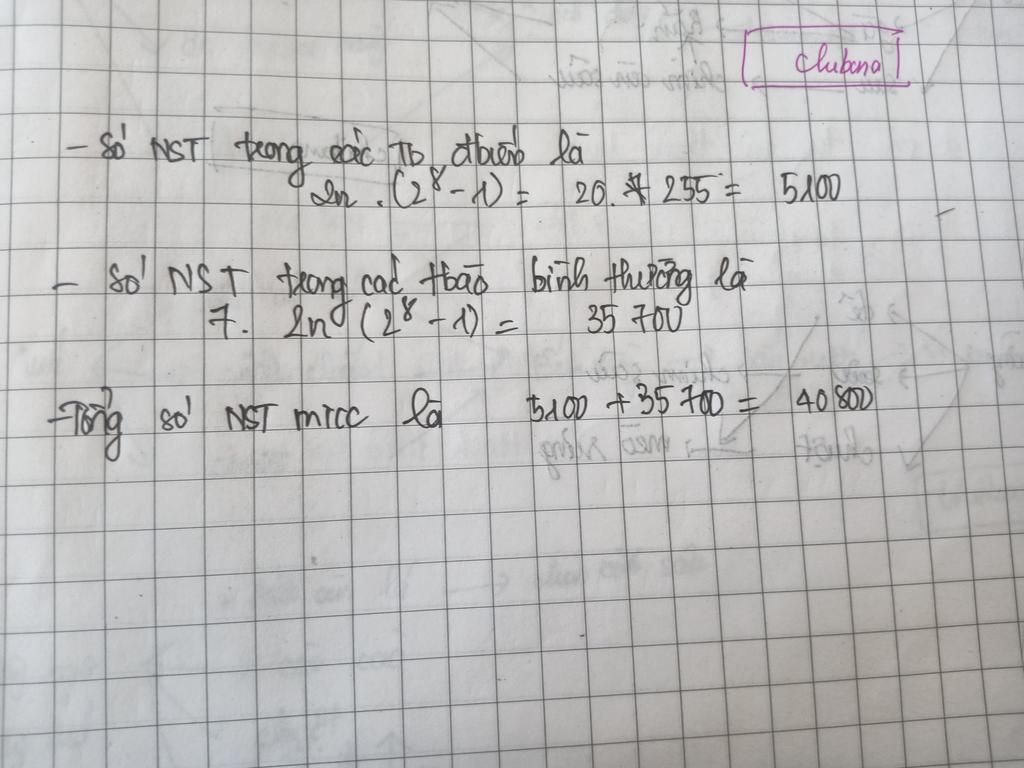 Clubona
- Số NST trong các Tb đtbiến là
2n . (2⁸ - 1) = 20. * 255 = 5100
- Số NST trong các tbào bình thường là
7. 2n (2⁸ - 1) = 35 700
- Tổng số NST mtcc là 5100 + 35 700 = 40 800